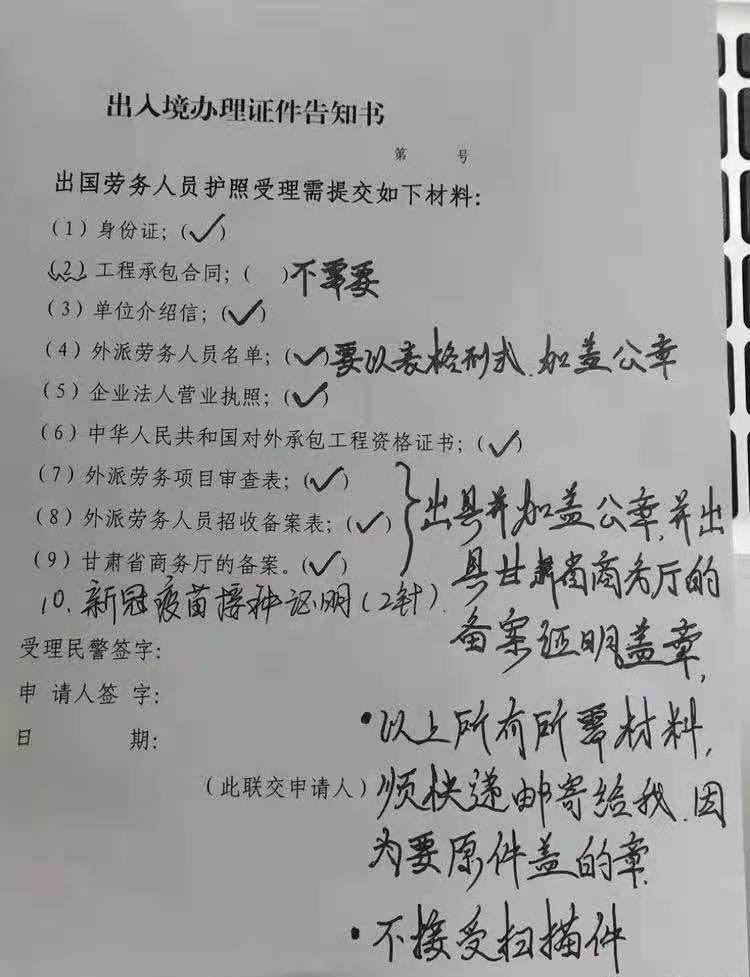 出入境办理证件告知书
第 号
出国劳务人员护照受理需提交如下材料：
（1）身份证；（✓）
（2）工程承包合同；（ ）不需要
（3）单位介绍信；（✓）
（4）外派劳务人员名单；（✓）要以表格形式，加盖公章
（5）企业法人营业执照；（✓）
（6）中华人民共和国对外承包工程资格证书；（✓）
（7）外派劳务项目审查表；（✓）
（8）外派劳务人员招收备案表；（✓）
（9）甘肃省商务厅的备案。（✓）
出具并加盖公章，并出
具甘肃省商务厅的
备案证明盖章，
10、新冠疫苗接种证明（2针）.
受理民警签字：
申 请人签 字：
日 期：
（此联交申请人）
•以上所有所需材料，
须快递邮寄给我，因
为要原件盖的章.
•不接受扫描件